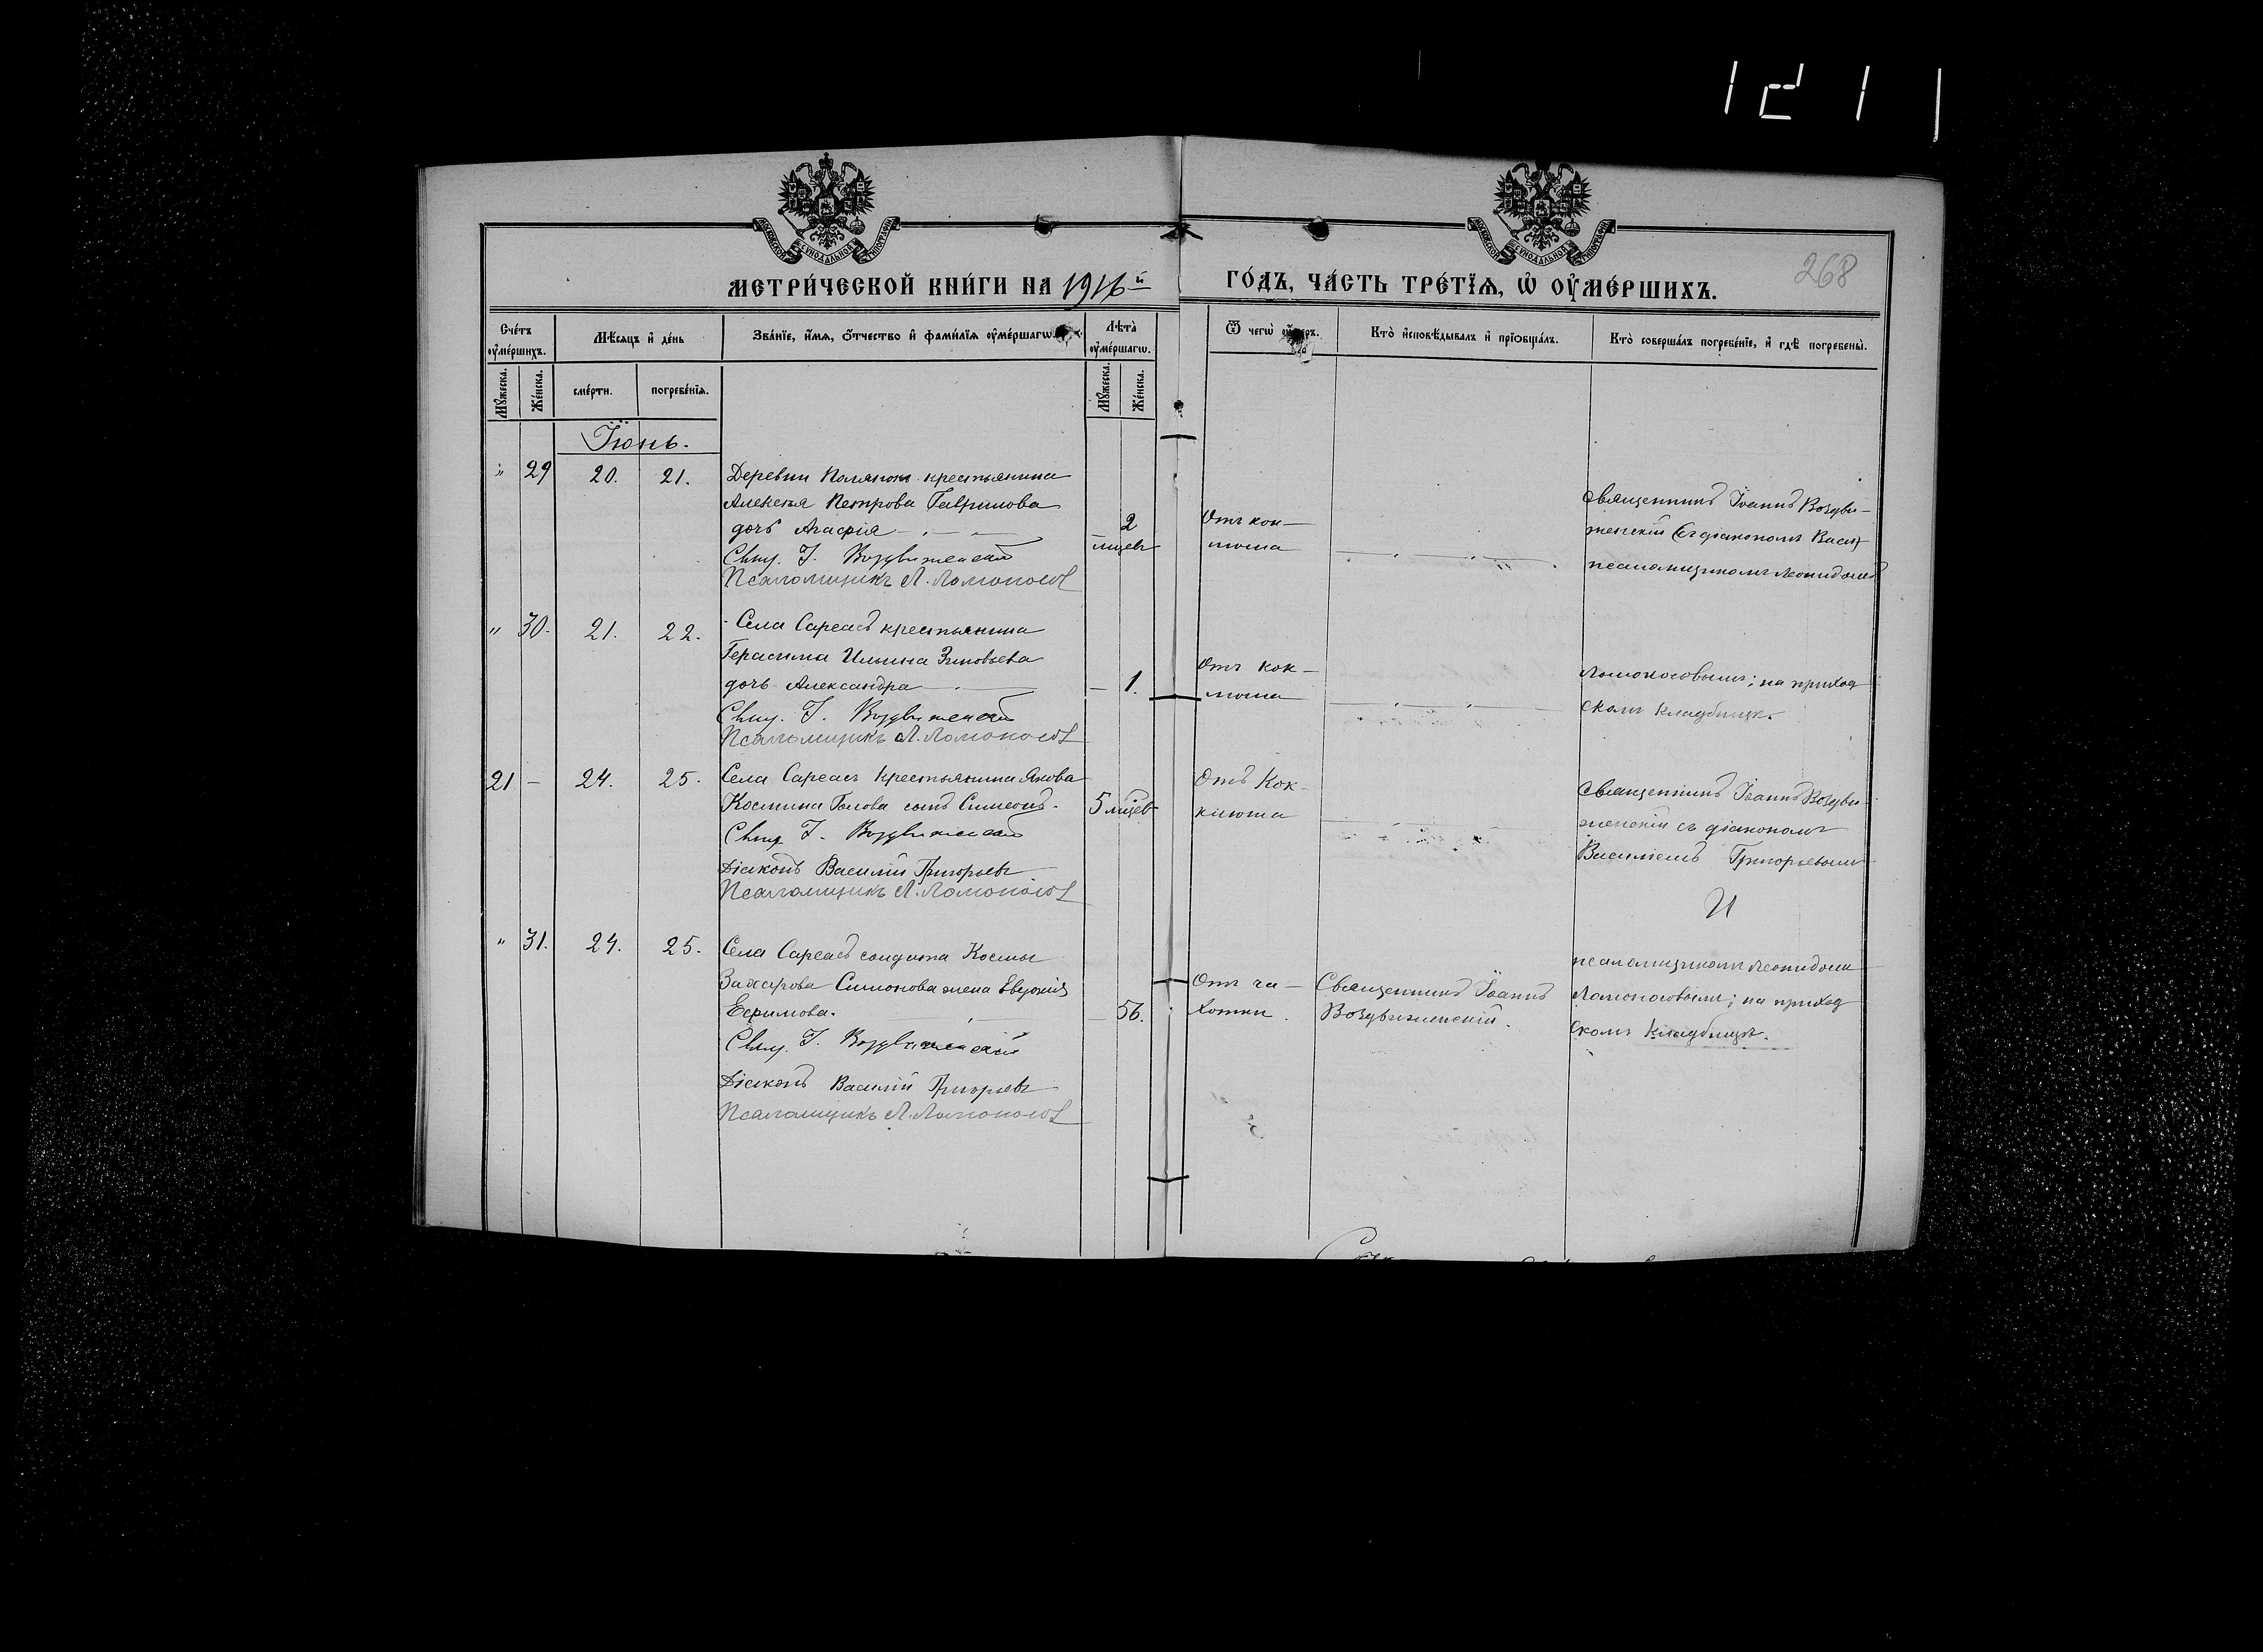 1211
МОСКОВСКОЙ СѴНОДАЛЬНОЙ ТИПОГРАФІИ
МОСКОВСКОЙ СѴНОДАЛЬНОЙ ТИПОГРАФІИ
268
МЕТРИ́ЧЕСКОЙ КНИ́ГИ НА 1916й
ГО́ДЪ, ЧА́СТЬ ТРЕ́ТЇѦ, Ѡ҆ ОУ҆МЕ́РШИХЪ.
Сче́тъ оу҆ме́ршихъ.
Мꙋ́жеска.
Же́нска.
Мѣ́сяцъ и҆ де́нь
сме́рти.
погребе́нїѧ.
Зва́нїе, и҆́мѧ, ѻ҆́тчество и҆ фами́лїѧ оу҆ме́ршагѡ
Лѣ́та оу҆ме́ршагѡ.
Мꙋ́жеска.
Же́нска.
Ѿ чегѡ̀
Кто̀ и҆сповѣ́дывалъ и҆ прїѡбща́лъ.
Кто̀ соверша́лъ погребе́нїе, и҆ гдѣ̀ погребены̀.
Іюнь.
" 29 20. 21.
Деревни крестьянина
Алексея Петрова Гаврилова
дочь Агафія
Свщ. І. Воздвиженскій
Псаломщикъ Л. Ломоносов
2
мѣсяц
Отъ кок-
люша
Священникъ Іоаннъ Воздви-
женскій съ діакономъ Васил
псаломщикомъ Леонидомъ
" 30. 21. 22.
Села Сареевъ крестьянина
Герасима Ильина Зиновьева
дочь Александра
Свщ. І. Воздвиженскій
Псаломщикъ Л. Ломоносов
– 1.
Отъ кок-
люша
Ломоносовымъ; на приход
скомъ кладбищѣ.
21 – 24. 25.
Села крестьянина Якова
Космина сынъ Симеонъ.
Свщ І. Воздвиженскій
Діаконъ Василій Григорьевъ
Псаломщикъ Л. Ломоносов
5
Отъ Кок-
люша
Священникъ Іоаннъ Воздви
женскій съ діакономъ
Василіемъ Григорьевымъ
И
" 31. 24. 25.
Села солдата Космы
Захарова Симонова жена Евдокія
Ефимова.
Свщ. І. Воздвиженскій
Діаконъ Василій Григорьевъ
Псаломщикъ Л. Ломоносов
56.
Отъ ча-
хотки.
Священникъ Іоаннъ
Воздвиженскій.
псаломщикомъ Леонидомъ
Ломоносовымъ; на приход
скомъ кладбищѣ.